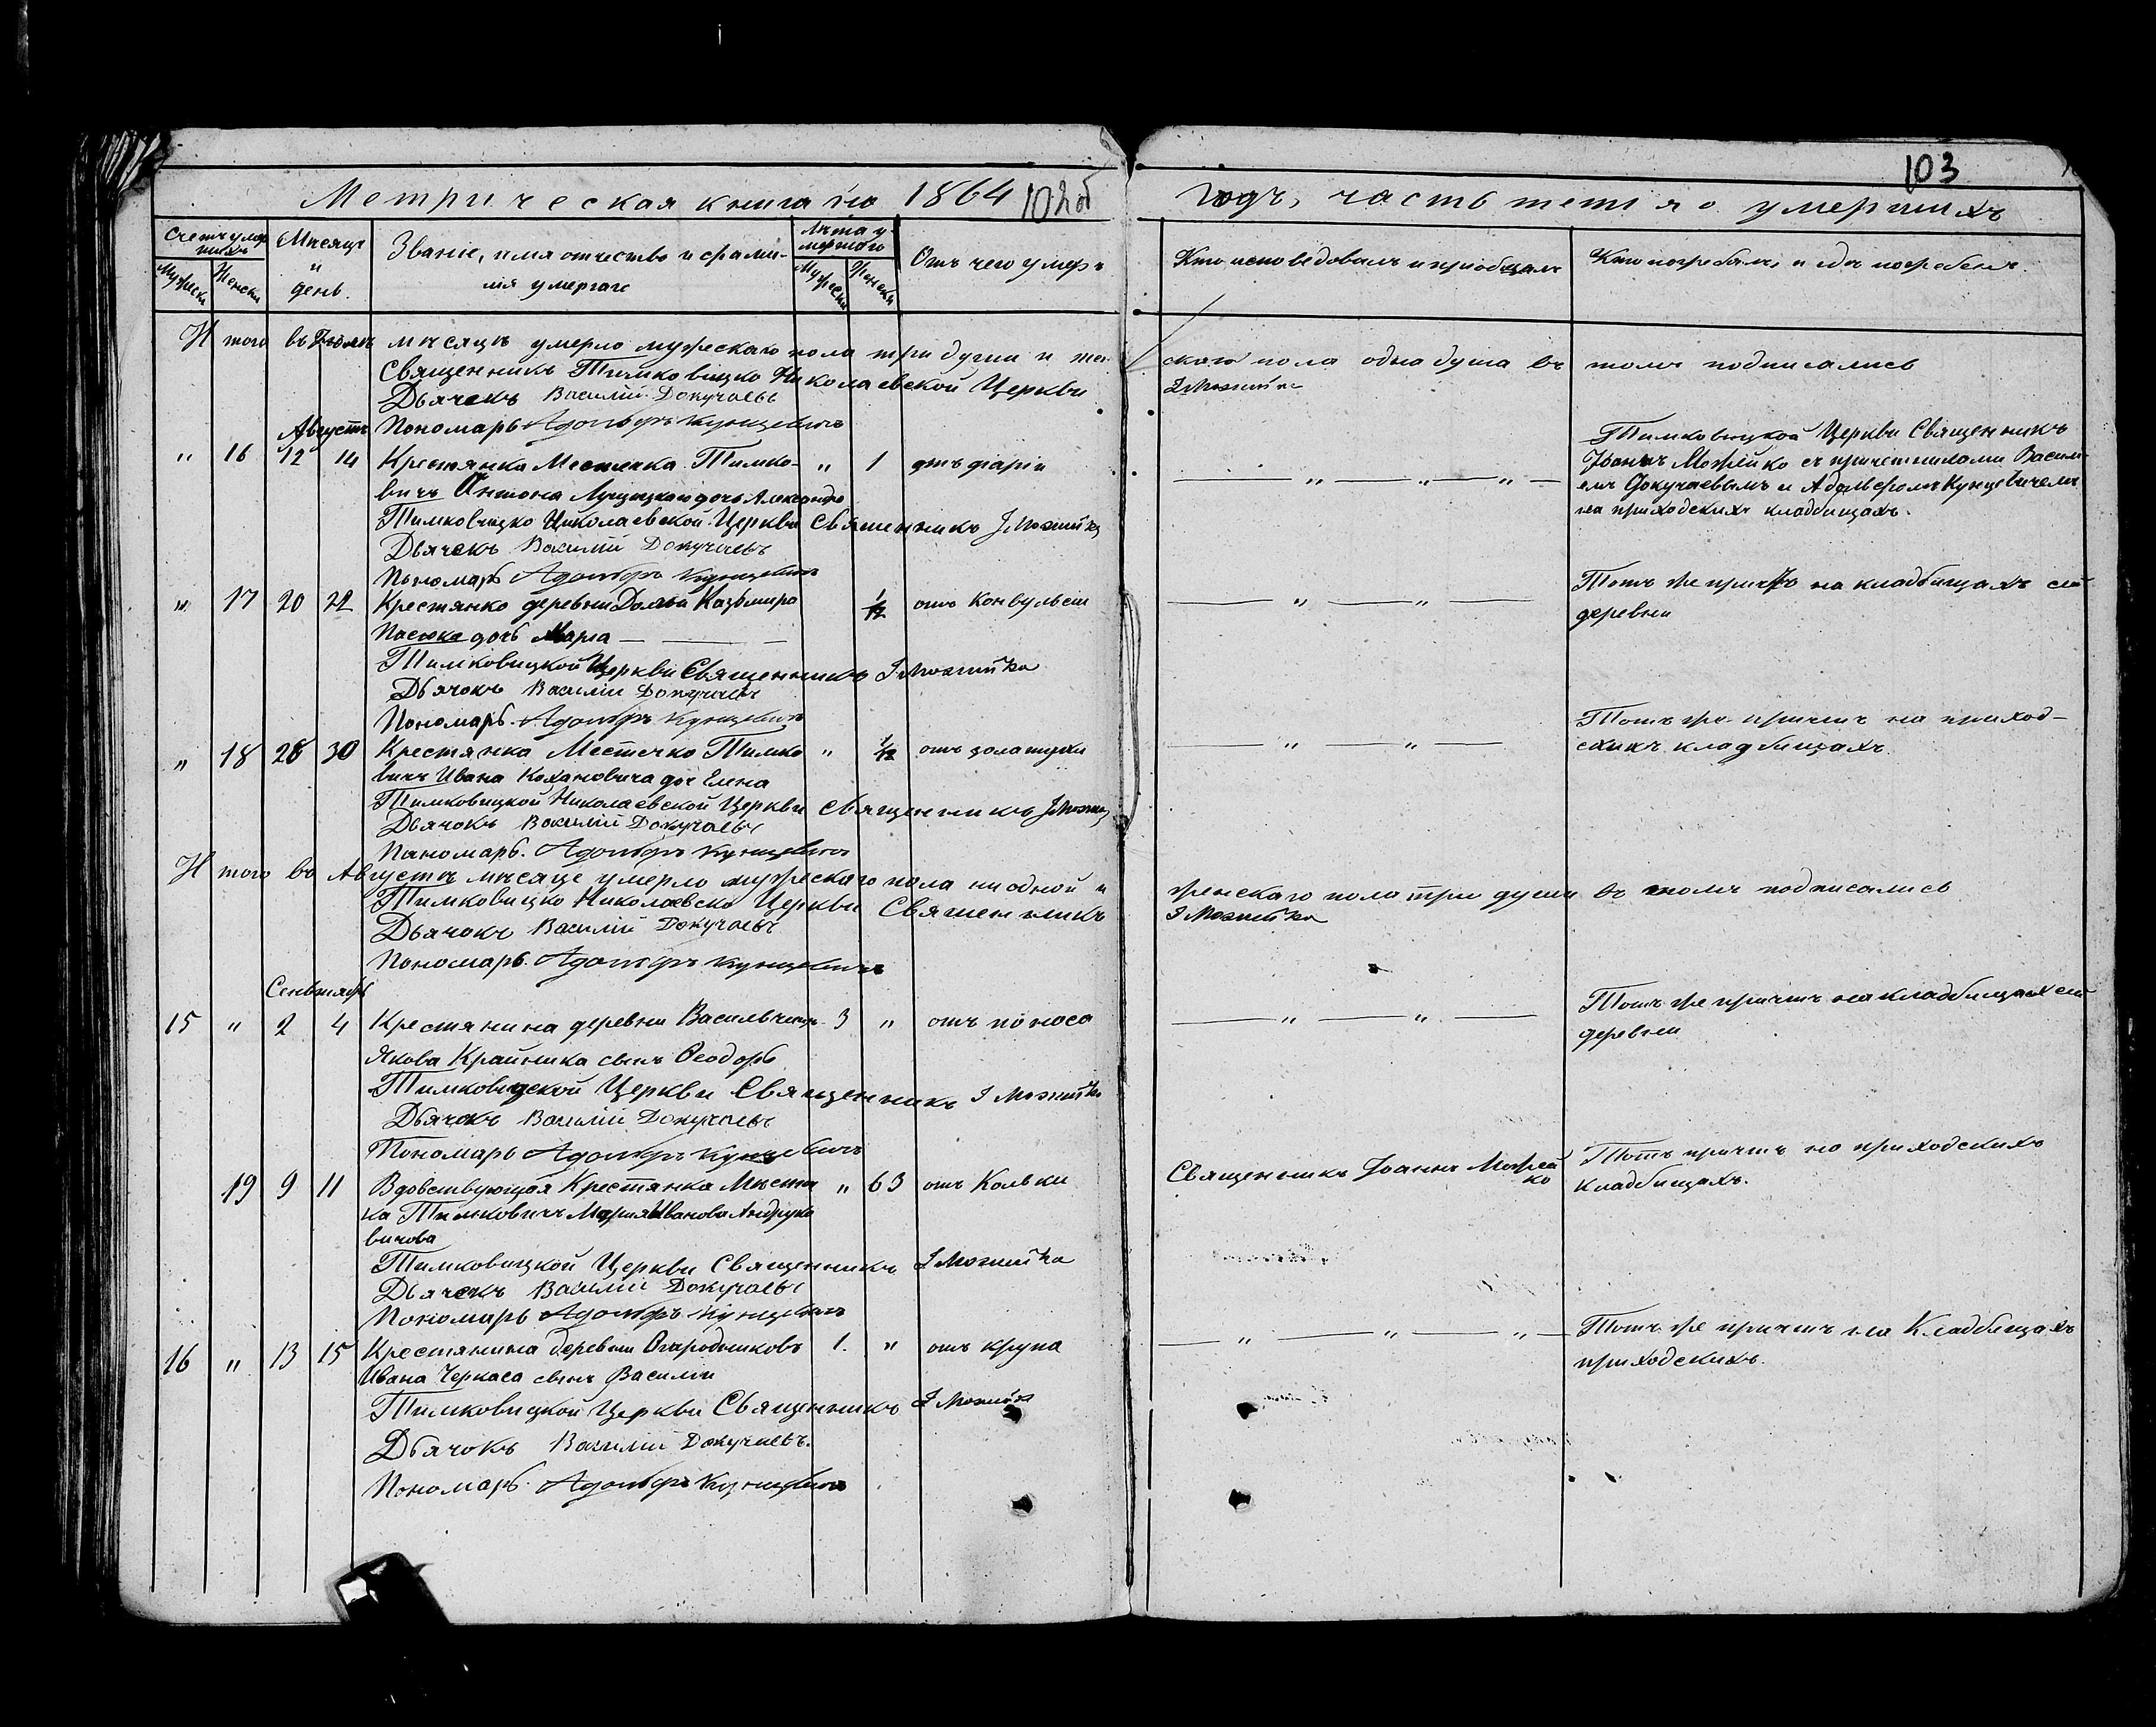 103
Метрическая книга на 1864 102об
годъ, часть третія о умершихъ
Счетъ умершихъ
Мужеска
Женска
Мѣсяцъ
и
день.
Званіе, имя отчество и фами-
лія умершаго
Лѣта у-
мершаго
Мужеска
Женска
Отъ чего умеръ
Кто исповѣдовалъ и пріобщалъ
Кто погребалъ, и гдѣ погребенъ.
И того въ Іюлѣ мѣсяцѣ умерло мужескаго пола три души и жен
скаго пола одна душа въ томъ подписались
Священникъ Тимковицко Николаевской Церкви
І Можейко
Дьячекъ Василій Докучаевъ
Пономарь Адольфъ Кунцевичъ
Августъ
„ 16 12 14 Крестянка Местечка Тимко- „ 1 отъ
вичъ Антона дочь Александра
Тимковицко Николаевской Церкви Священникъ І Можейко
Дьячекъ Василій Докучаевъ
Пономарь Адольфъ Кунцевичъ
Тимковицкой Церкви Священникъ
Іоаннъ Можейко съ причетниками Васили-
емъ Докучаевымъ и Адольфомъ Кунцевичемъ
на приходскихъ кладбищахъ.
„ 17 20 22 Крестянко деревни Казьмира 1/12 отъ Конвульсіи
дочь Марія
Тимковицкой Церкви Священникъ І Можейко
Дьячокъ Василій Докучаевъ
Пономарь Адольфъ Кунцевичъ
Тотъ же причтъ на кладбищахъ сей
деревни
„ 18 28 30 Крестянка Местечко Тимко „ 1/12 отъ золатухи
вичъ Ивана Кохановича доч Елена
Тимковицкой Николаевской Церкви Священникъ І Можей
Дьячокъ Василій Докучаевъ
Пономарь. Адольфъ Кунцевичъ
Тотъ же причтъ на приход-
скихъ кладбищахъ.
И того во Августѣ мѣсяце умерло мужескаго пола ни одной и
женскаго пола три души въ томъ подписались
Тимковицко Николаевско Церкви Священникъ
І Можейко
Дьячокъ Василій Докучаевъ
Пономарь. Адольфъ Кунцевичъ
Сентябрь
15 „ 2 4 Крестянина деревни 3 „ отъ поноса
Якова Крайника сынъ Ѳеодоръ
Тимковицской Церкви Священникъ І Можейко
Дьячокъ Василій Докучаевъ
Пономарь Адольфъ Кунцевичъ
Тотъ же причтъ на кладбищахъ сей
деревни
19 9 11 Вдовствующая Крестянка Мѣстеч „ 63 отъ Кольки
ка Тимковичъ Марія Иванова Андрука
вичова
Тимковицкой Церкви Священникъ І Можейко
Дьячекъ Василій Докучаевъ
Пономарь Адольфъ Кунцевичъ
Священникъ Іоаннъ Можей
ко
Тотъ причтъ на приходскихъ
кладбищахъ.
16 „ 13 15 Крестянина деревни Огародниковъ 1. „ отъ крупа
Ивана Черкаса сынъ Василій
Тимковицкой Церкви Священникъ І Можейко
Дьячокъ Василій Докучаевъ.
Пономарь. Адольфъ Кунцевичъ
Тотъ же причтъ на Кладбищахъ
приходскихъ.